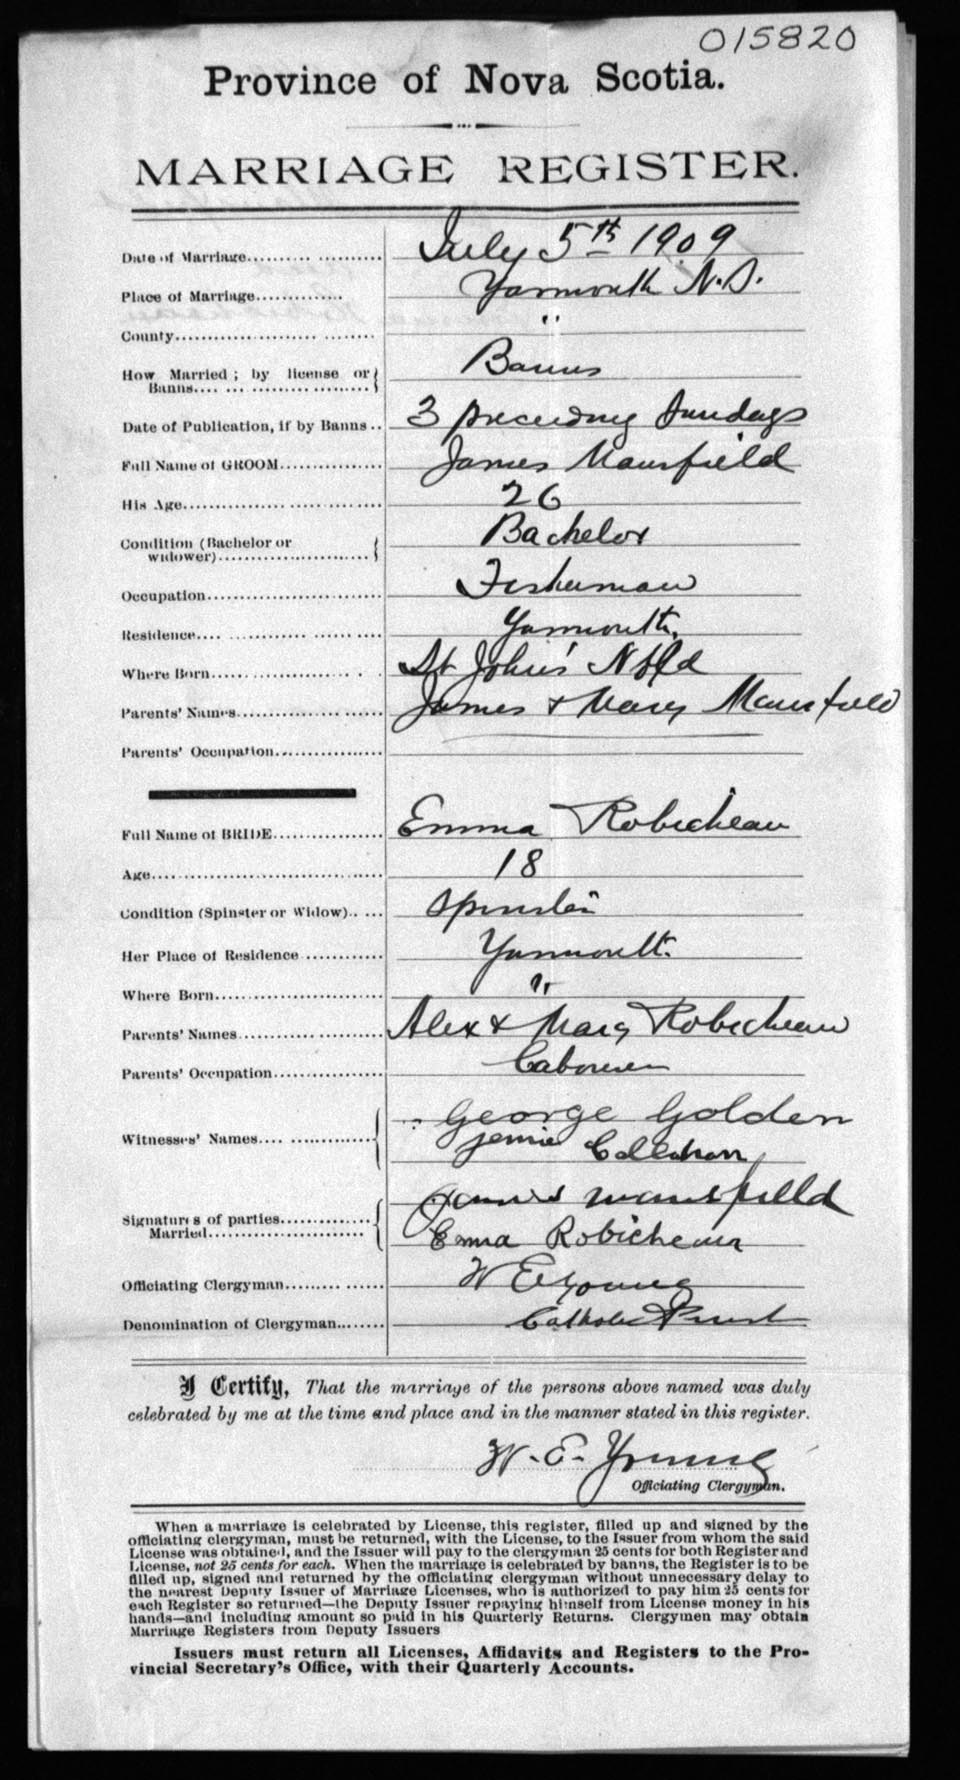 015820
Province of Nova Scotia.
MARRIAGE REGISTER.
Date of Marriage.......... July 5th 1909
Place of Marriage.......... Yarmouth N.S.
County.......... "
How Married; by license or Banns.......... Banns
Date of Publication, if by Banns.. 3 preceding Sundays
Full Name of GROOM.......... James Mansfield
His Age.......... 26
Condition (Bachelor or widower).......... Bachelor
Occupation.......... Fisherman
Residence.......... Yarmouth.
Where Born.......... St John's Nfld
Parents' Names.......... James & Mary Mansfield
Parents' Occupation..........
Full Name of BRIDE.......... Emma Robicheau
Age.......... 18
Condition (Spinster or Widow)..... Spinster
Her Place of Residence .......... Yarmouth.
Where Born.......... "
Parents' Names.......... Alex & Mary Robicheau
Parents' Occupation..........
Witnesses' Names.......... George Golden
Jennie
Signatures of parties Married.......... James Mansfield
Emma Robicheau
Officiating Clergyman.......... W E Young
Denomination of Clergyman....... Catholic Priest
I Certify, That the marriage of the persons above named was duly
celebrated by me at the time and place and in the manner stated in this register.
W. E. Young
Officiating Clergyman.
When a marriage is celebrated by License, this register, filled up and signed by the
officiating clergyman, must be returned, with the License, to the Issuer from whom the said
License was obtained, and the Issuer will pay to the clergyman 25 cents for both Register and
License, not 25 cents for each. When the marriage is celebrated by banns, the Register is to be
filled up, signed and returned by the officiating clergyman without unnecessary delay to
the nearest Deputy Issuer of Marriage Licenses, who is authorized to pay him 25 cents for
each Register so returned—the Deputy Issuer repaying himself from License money in his
hands—and including amount so paid in his Quarterly Returns. Clergymen may obtain
Marriage Registers from Deputy Issuers
Issuers must return all Licenses, Affidavits and Registers to the Pro-
vincial Secretary's Office, with their Quarterly Accounts.